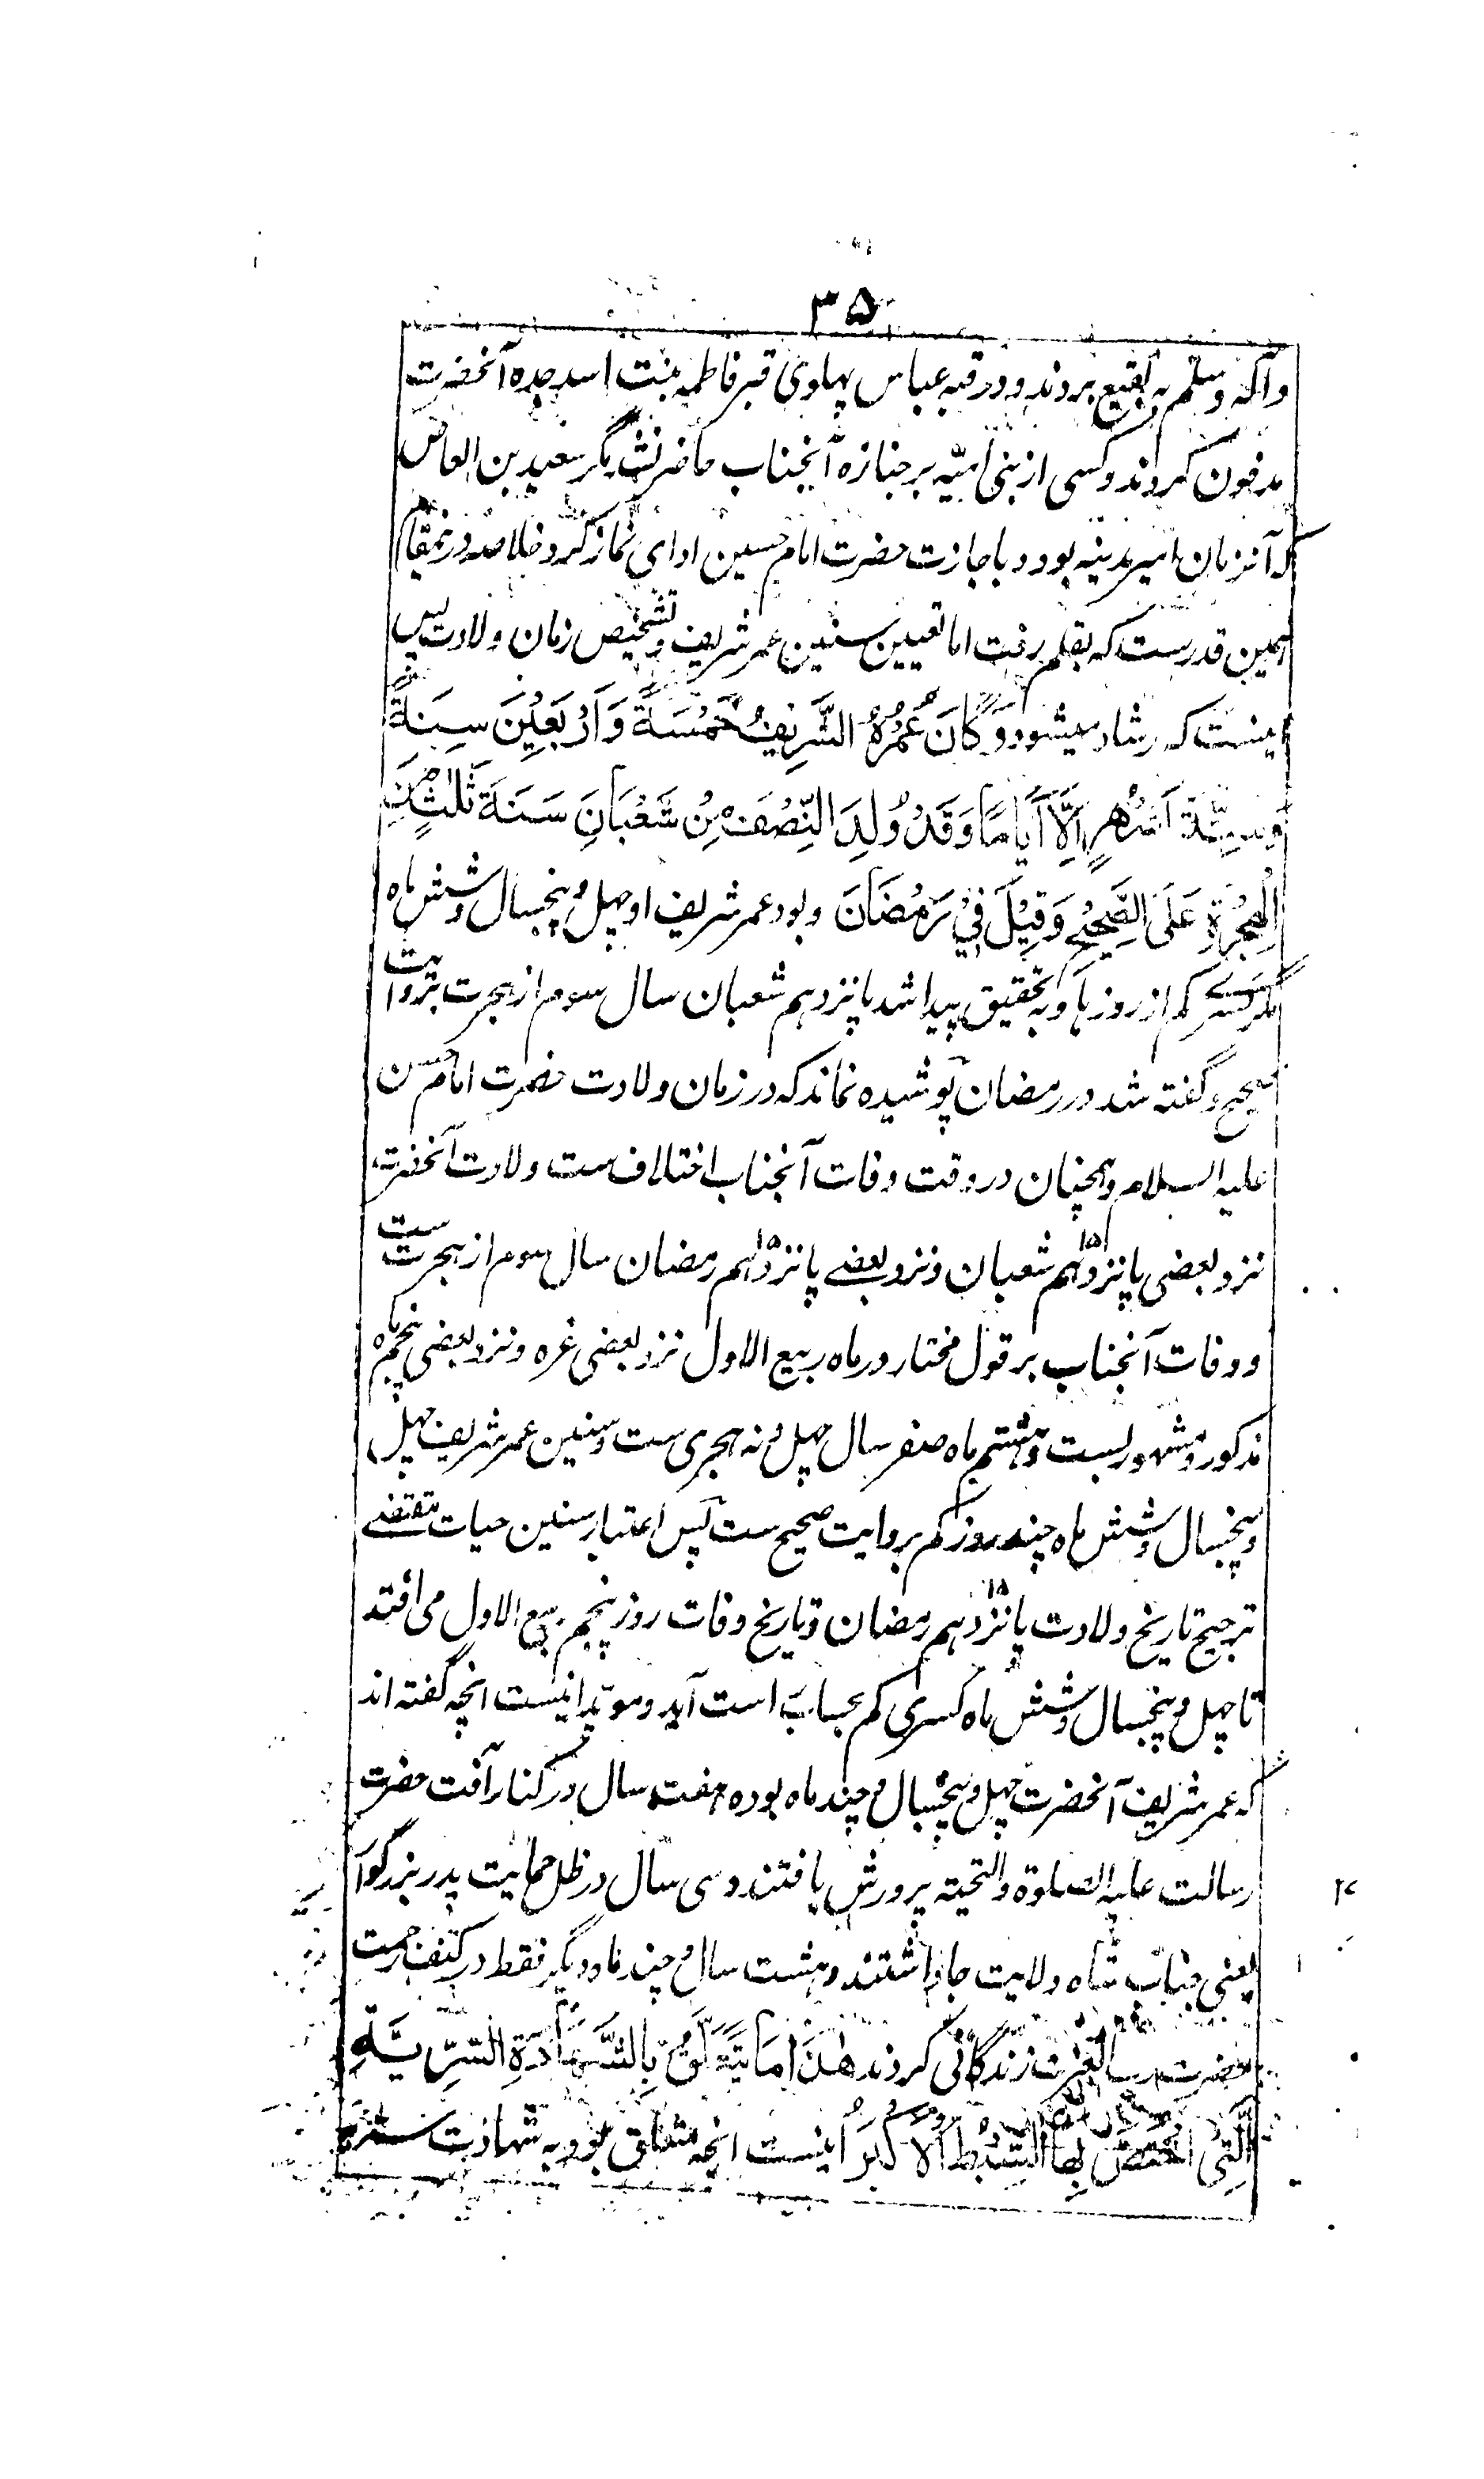 ۳۵
وآله وسلم به بقیع بردند و در قبه عباس پهلوی قبر فاطمه بنت اسد جده آنحضرت
مدفون کردند و کسی از بنی امیّه بر جنازه آنجناب حاضر نشد مگر سعید بن العاص
که آنزمان امیر مدینه بود و باجازت حضرت امام حسین ادای نماز کرد خلاصه درینمقام
همین قدرست که بقلم رفت اما تعیین سنین عمر شریف و تشخیص زمان ولادت پس
اینست که ارشاد میشود وَكَانَ عُمُرُهُ الشَّرِيفُ خَمْسَةً وَأَرْبَعِيْنَ سِنَةً
وَسِتَّةَ اَشْهُرٍ اِلَّا اَيَّامًا وَقَدْ وُلِدَ النِّصْفَ مِنْ شَعْبَانَ سَنَةَ ثَلٰثٍ مِنَ
الْهِجْرَةِ عَلَى الصَّحِيْحِ وَقِيْلَ فِيْ رَمْضَانَ و بود عمر شریف او چهل و پنجسال و شش ماه
مگر کسرے کم از روزها و به تحقیق پیدا شد پانزدهم شعبان سال سوم از هجرت بروایت
صحیح و گفته شد در رمضان پوشیده نماند که در زمان ولادت حضرت امام حسن
علیه السلام و همچنان در وقت وفات آنجناب اختلاف ست ولادت آنحضرت
نزد بعضی پانزدهم ۱۵ شعبان و نزد بعضے پانزدهم ۱۵ رمضان سال سوم از هجرت ست
و وفات آنجناب بر قول مختار در ماه ربیع الاول نزد بعضی غره و نزد بعضی پنجم ماه
مذکور و مشهور بست و هشتم ماه صفر سال چهل و نه هجری ست و سنین عمر شریف چهل
و پنجسال و شش ماه چند روز کم بروایت صحیح ست پس اعتبار سنین حیات مقتضے
ترجیح تاریخ ولادت پانزدهم ۱۵ رمضان و تاریخ وفات روز پنجم ربیع الاول می افتد
تا چهل و پنجسال و شش ماه کسری کم بحساب راست آید و موید اینست انچه گفته اند
که عمر شریف آنحضرت چهل و پنجسال و چند ماه بوده هفت سال در کنار رأفت حضرت
رسالت علیه الصلوة والتحیته پرورش یافتند و سی سال در ظل حمایت پدر بزرگوار
یعنی جناب شاه ولایت جا داشتند و هشت سال و چند ماه دیگر فقط در کنف رحمت
حضرت رب العزت زندگانی کردند هٰذَا مَا يَتَعَلَّقُ بِالشَّهَادَةِ السِّرِّيَّةِ
الَّتِيْ اخْتَصَّ بِهَا السِّبْطُ الْاَكْبَرُ اینست انچه متعلق بود به شهادت سریه